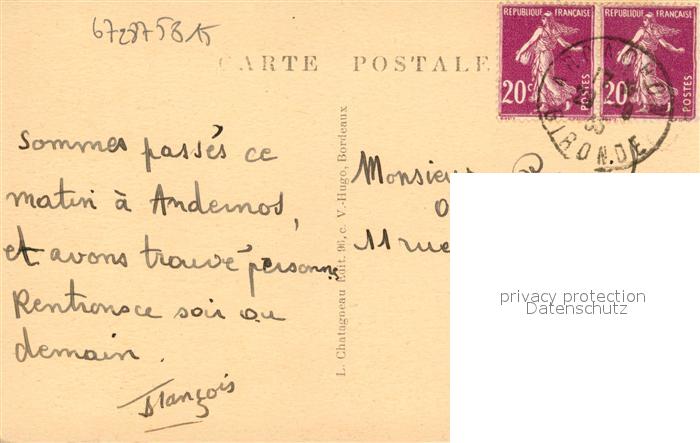 672875815
CARTE POSTALE
REPUBLIQUE FRANÇAISE
20c
POSTES
REPUBLIQUE FRANÇAISE
20c
POSTES
GIRONDE
Sommes passés ce
matin à Andernos,
et avons trouvé personne
Rentrons ce soir ou
demain.
François
L. Chatagneau Edit. 96, c. V.-Hugo, Bordeaux
Monsieur
11 rue
privacy protection
Datenschutz